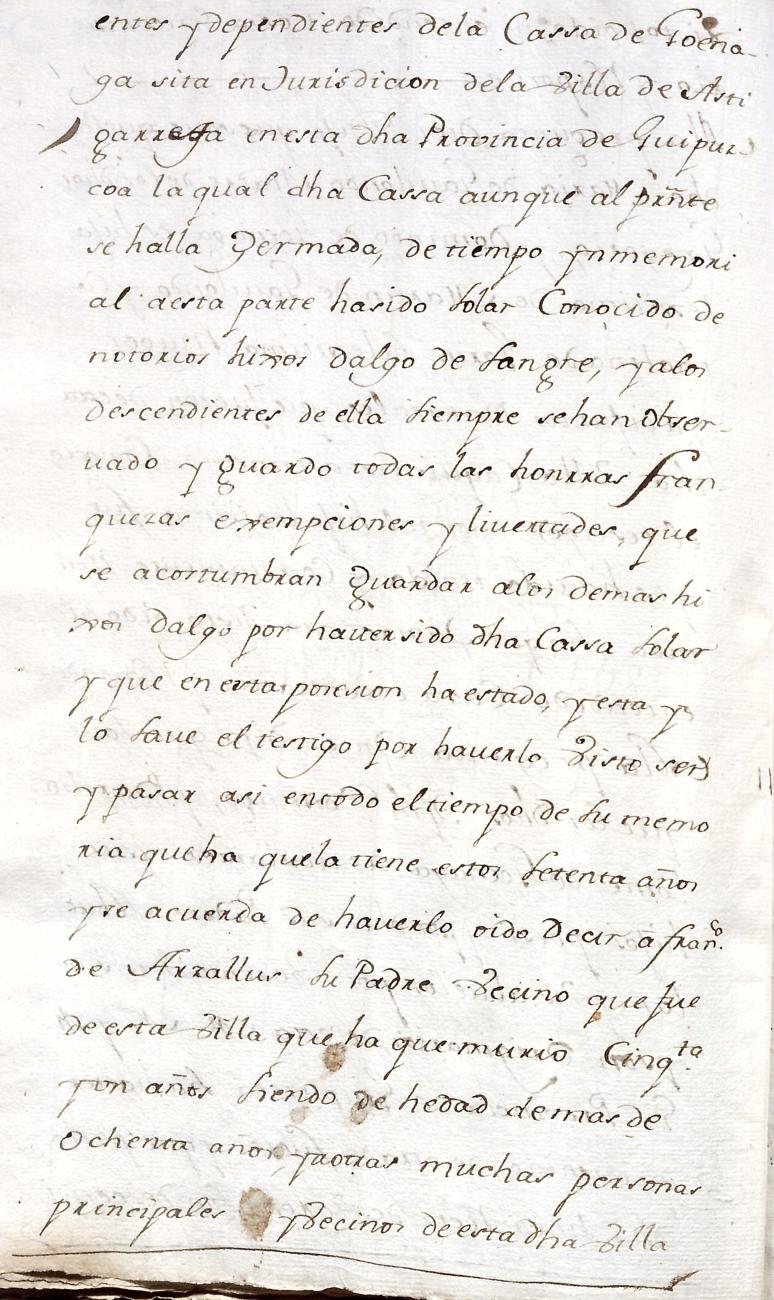 entes y dependientes dela Cassa de Goena-
ga sita en Jurisdicion dela Villa de Asti
garrega en esta dha Provincia de Guipuz-
coa la qual dha Cassa aunque al prñte
se halla Yermada, de tiempo ynmemori
al aesta parte hasido solar Conocido de
notorios hixos dalgo de sangre, y alos
descendientes de ella siempre sehan obser-
uado y guardo todas las honrras fran
quezas exempciones y livertades, que
se acostumbran Guardar alos demas hi
xos Dalgo por hauer sido dha Cassa solar
y que en esta posesion ha estado, y esta y
lo saue el testigo por hauerlo Visto ser
y pasar asi entodo el tiempo de su memo
ria queha quela tiene estos setenta años
yse acuerda de hauerlo oido Decir a franco.
de Arrallus su Padre Vecino que fue
de esta Villa que ha que murio Cinqta.
y un años siendo de hedad de mas de
Ochenta años, y a otras muchas personas
principales y Vecinos de esta dha Villa